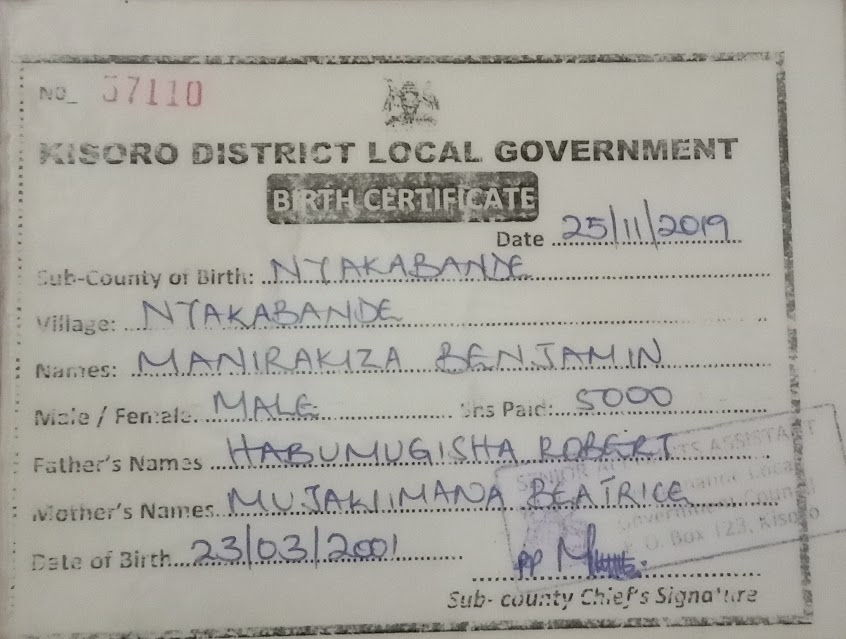 NO_ 57110
KISORO DISTRICT LOCAL GOVERNMENT
BIRTH CERTIFICATE
Date 25/11/2019
Sub-County of Birth: NYAKABANDE
Village: NYAKABANDE
Names: MANIRAKIZA BENJAMIN
Male / Female. MALE Shs Paid: 5000
Father's Names HABUMUGISHA ROBERT
Mother's Names MUJAWIMANA BEATRICE
Date of Birth 23/03/2001
SENIOR ACCOUNTS ASSISTANT
Local
Government Council
P. O. Box 123, Kisoro
PP
Sub- county Chief's Signature